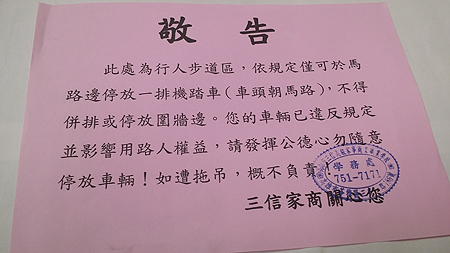 敬告
此處為行人步道區，依規定僅可於馬
路邊停放一排機踏車（車頭朝馬路），不得
併排或停放圍牆邊。您的車輛已違反規定
並影響用路人權益，請發揮公德心勿隨意
停放車輛！如遭拖吊，概不負責！
三信家商關心您
學務處
751-7171